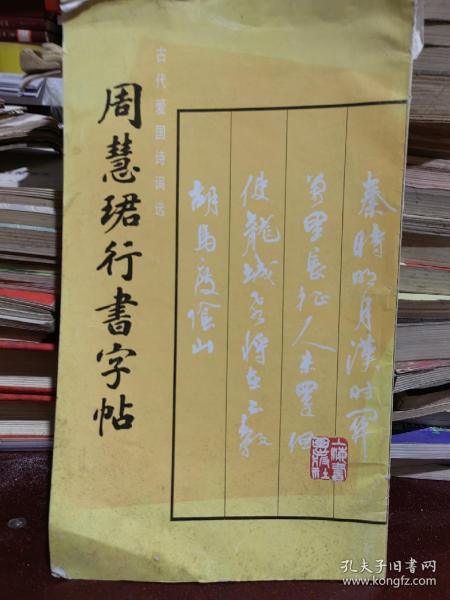 周慧珺行書字帖
古代爱国诗词选
秦時明月漢時關
萬里長征人未還但
使龍城飛將在不教
胡馬度陰山
孔夫子旧书网
www.kongfz.com